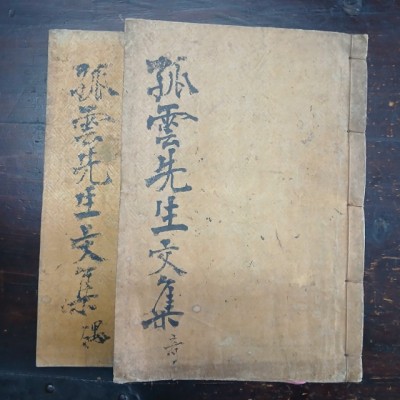 孤雲先生文集
孤雲先生文集